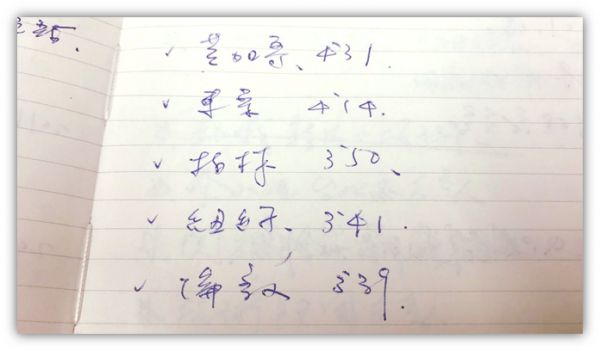 ✓ 芝加哥、431.
✓ 東京 414.
✓ 柏林 350、
✓ 纽约、341.
✓ 倫敦 339.